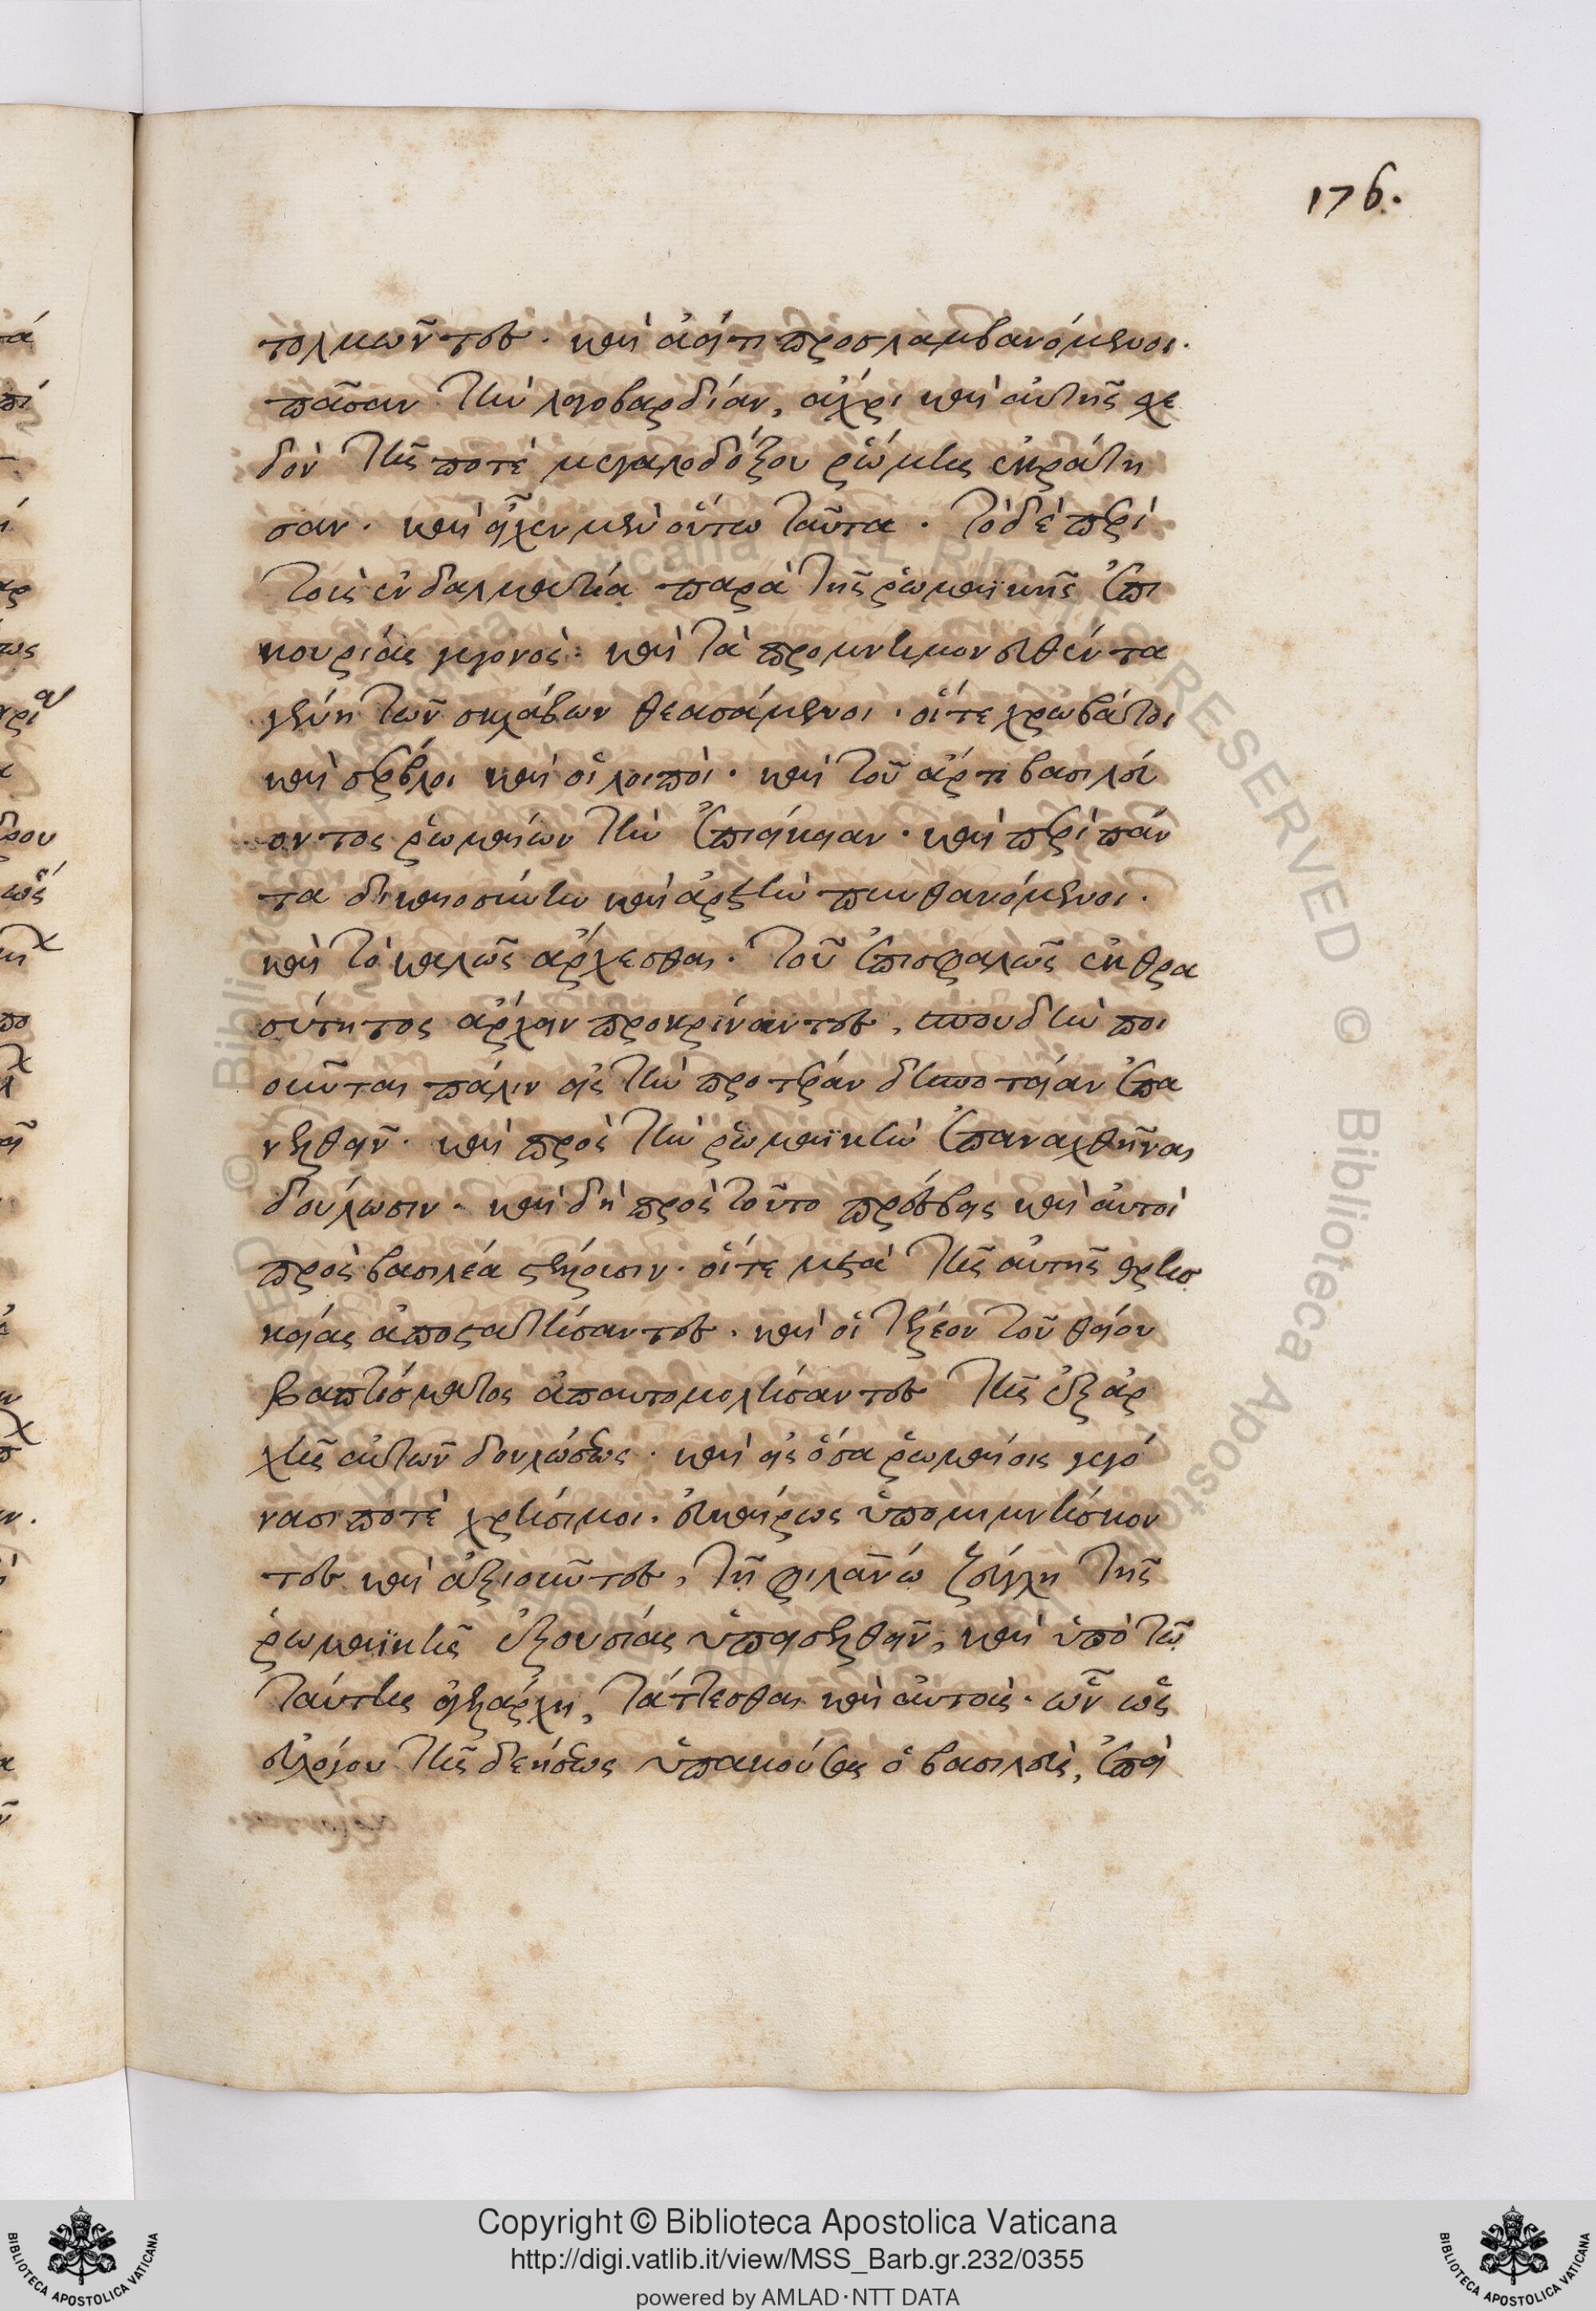 176.
τολμῶντες. καὶ ἀεί τι προσλαμβανόμενοι.
πᾶσαν τὴν λογοβαρδίαν, ἄχρι καὶ αὐτῆς σχε
δὸν τῆς ποτὲ μεγαλοδόξου ῥώμης ἐκράτη
σαν. καὶ εἶχεν μὲν οὕτω ταῦτα. τὸ δὲ περὶ
τοὺς ἐν δαλματία παρὰ τῆς ῥωμαϊκῆς ἐπι
κουρίας γεγονός. καὶ τὰ προμνημονευθέντα
γένη τῶν σκλάβων θεασάμενοι. οἵ τε χρωβάτοι
καὶ σέρβλοι καὶ οἱ λοιποὶ. καὶ τοῦ ἄρτι βασιλεύ
οντος ῥωμαίων τὴν ἐπιείκειαν. καὶ περὶ πάν
τα δικαιοσύνην καὶ ἀρετὴν πυνθανόμενοι.
καὶ τὸ καλῶς ἄρχεσθαι. τοῦ ἐπισφαλῶς ἐκ θρα
σύτητος ἄρχειν προκρίναντες, σπουδὴν ποι
οῦνται πάλιν εἰς τὴν προτέραν δεσποτείαν ἐπα
νελθεῖν. καὶ πρὸς τὴν ῥωμαϊκὴν ἐπαναχθῆναι
δούλωσιν. καὶ δὴ πρὸς τοῦτο πρέσβεις καὶ αὐτοὶ
πρὸς βασιλέα στέλλουσιν. οἵ τε μετὰ τῆς αὐτῆς θρησ
κείας ἀποστατήσαντες. καὶ οἱ τέλεον τοῦ θείου
βαπτίσματος ἀπαυτομολήσαντες τῆς ἐξ ἀρ
χῆς αὐτῶν δουλώσεως. καὶ εἰς ὅσα ῥωμαίοις γεγό
νασι ποτὲ χρήσιμοι. εὐκαίρως ὑπομιμνήσκον
τες καὶ ἀξιοῦντες, τῇ φιλανῶ ζεύγλη τῆς
ῥωμαϊκῆς ἐξουσίας ὑπεισελθεῖν, καὶ ὑπὸ τῶ
ταύτης ἀγελάρχη, τάττεσθαι καὶ αὐτοὺς. ὧν ὡς
εὐλόγου τῆς δεήσεως ὑπακούσας ὁ βασιλεὺς, ἐπεὶ
Copyright © Biblioteca Apostolica Vaticana
http://digi.vatlib.it/view/MSS_Barb.gr.232/0355
powered by AMLAD·NTT DATA